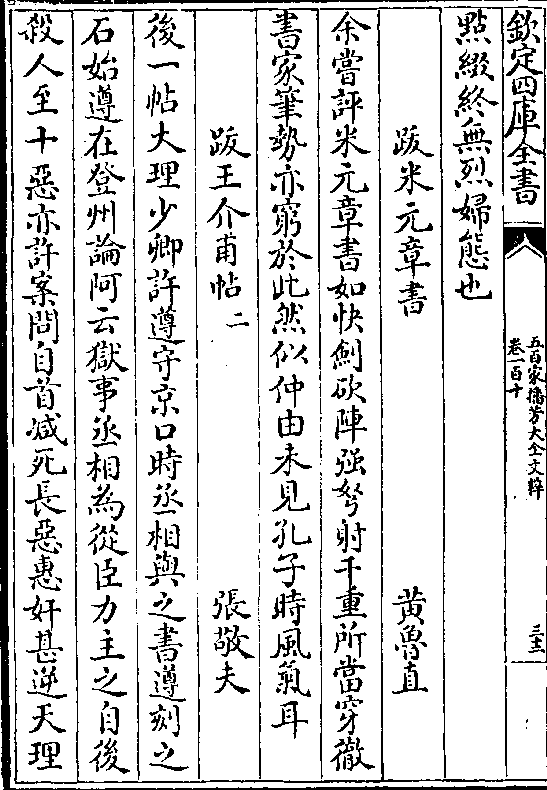 欽定四庫全書
五百家播芳大全文粹
卷一百十
三十三
點綴終無烈婦態也
跋米元章書　黄魯直
余嘗評米元章書如快劍砍陣强弩射千重所當穿徹
書家筆勢亦窮於此然似仲由未見孔子時風氣耳
跋王介甫帖二　張敬夫
後一帖大理少卿許遵守京口時丞相與之書遵刻之
石始遵在登州論阿云獄事丞相為從臣力主之自後
殺人至十惡亦許案問自首减死長惡惠奸甚逆天理